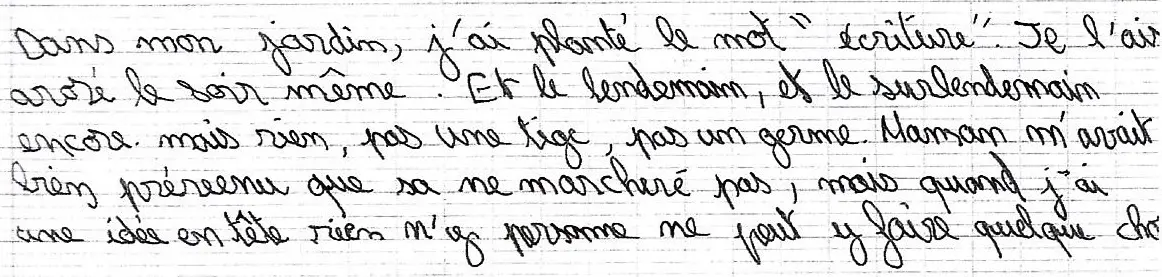 Dans mon jardin, j'ai planté le mot "écriture". Je l'ais
arosé le soir même. Et le lendemain, et le surlendemain
encore. mais rien, pas une tige, pas un germe. Maman m'avait
bien préveenu que sa ne marcheré pas, mais quand j'ai
une idée en tête rien n'y personne ne peut y faire quelque cho